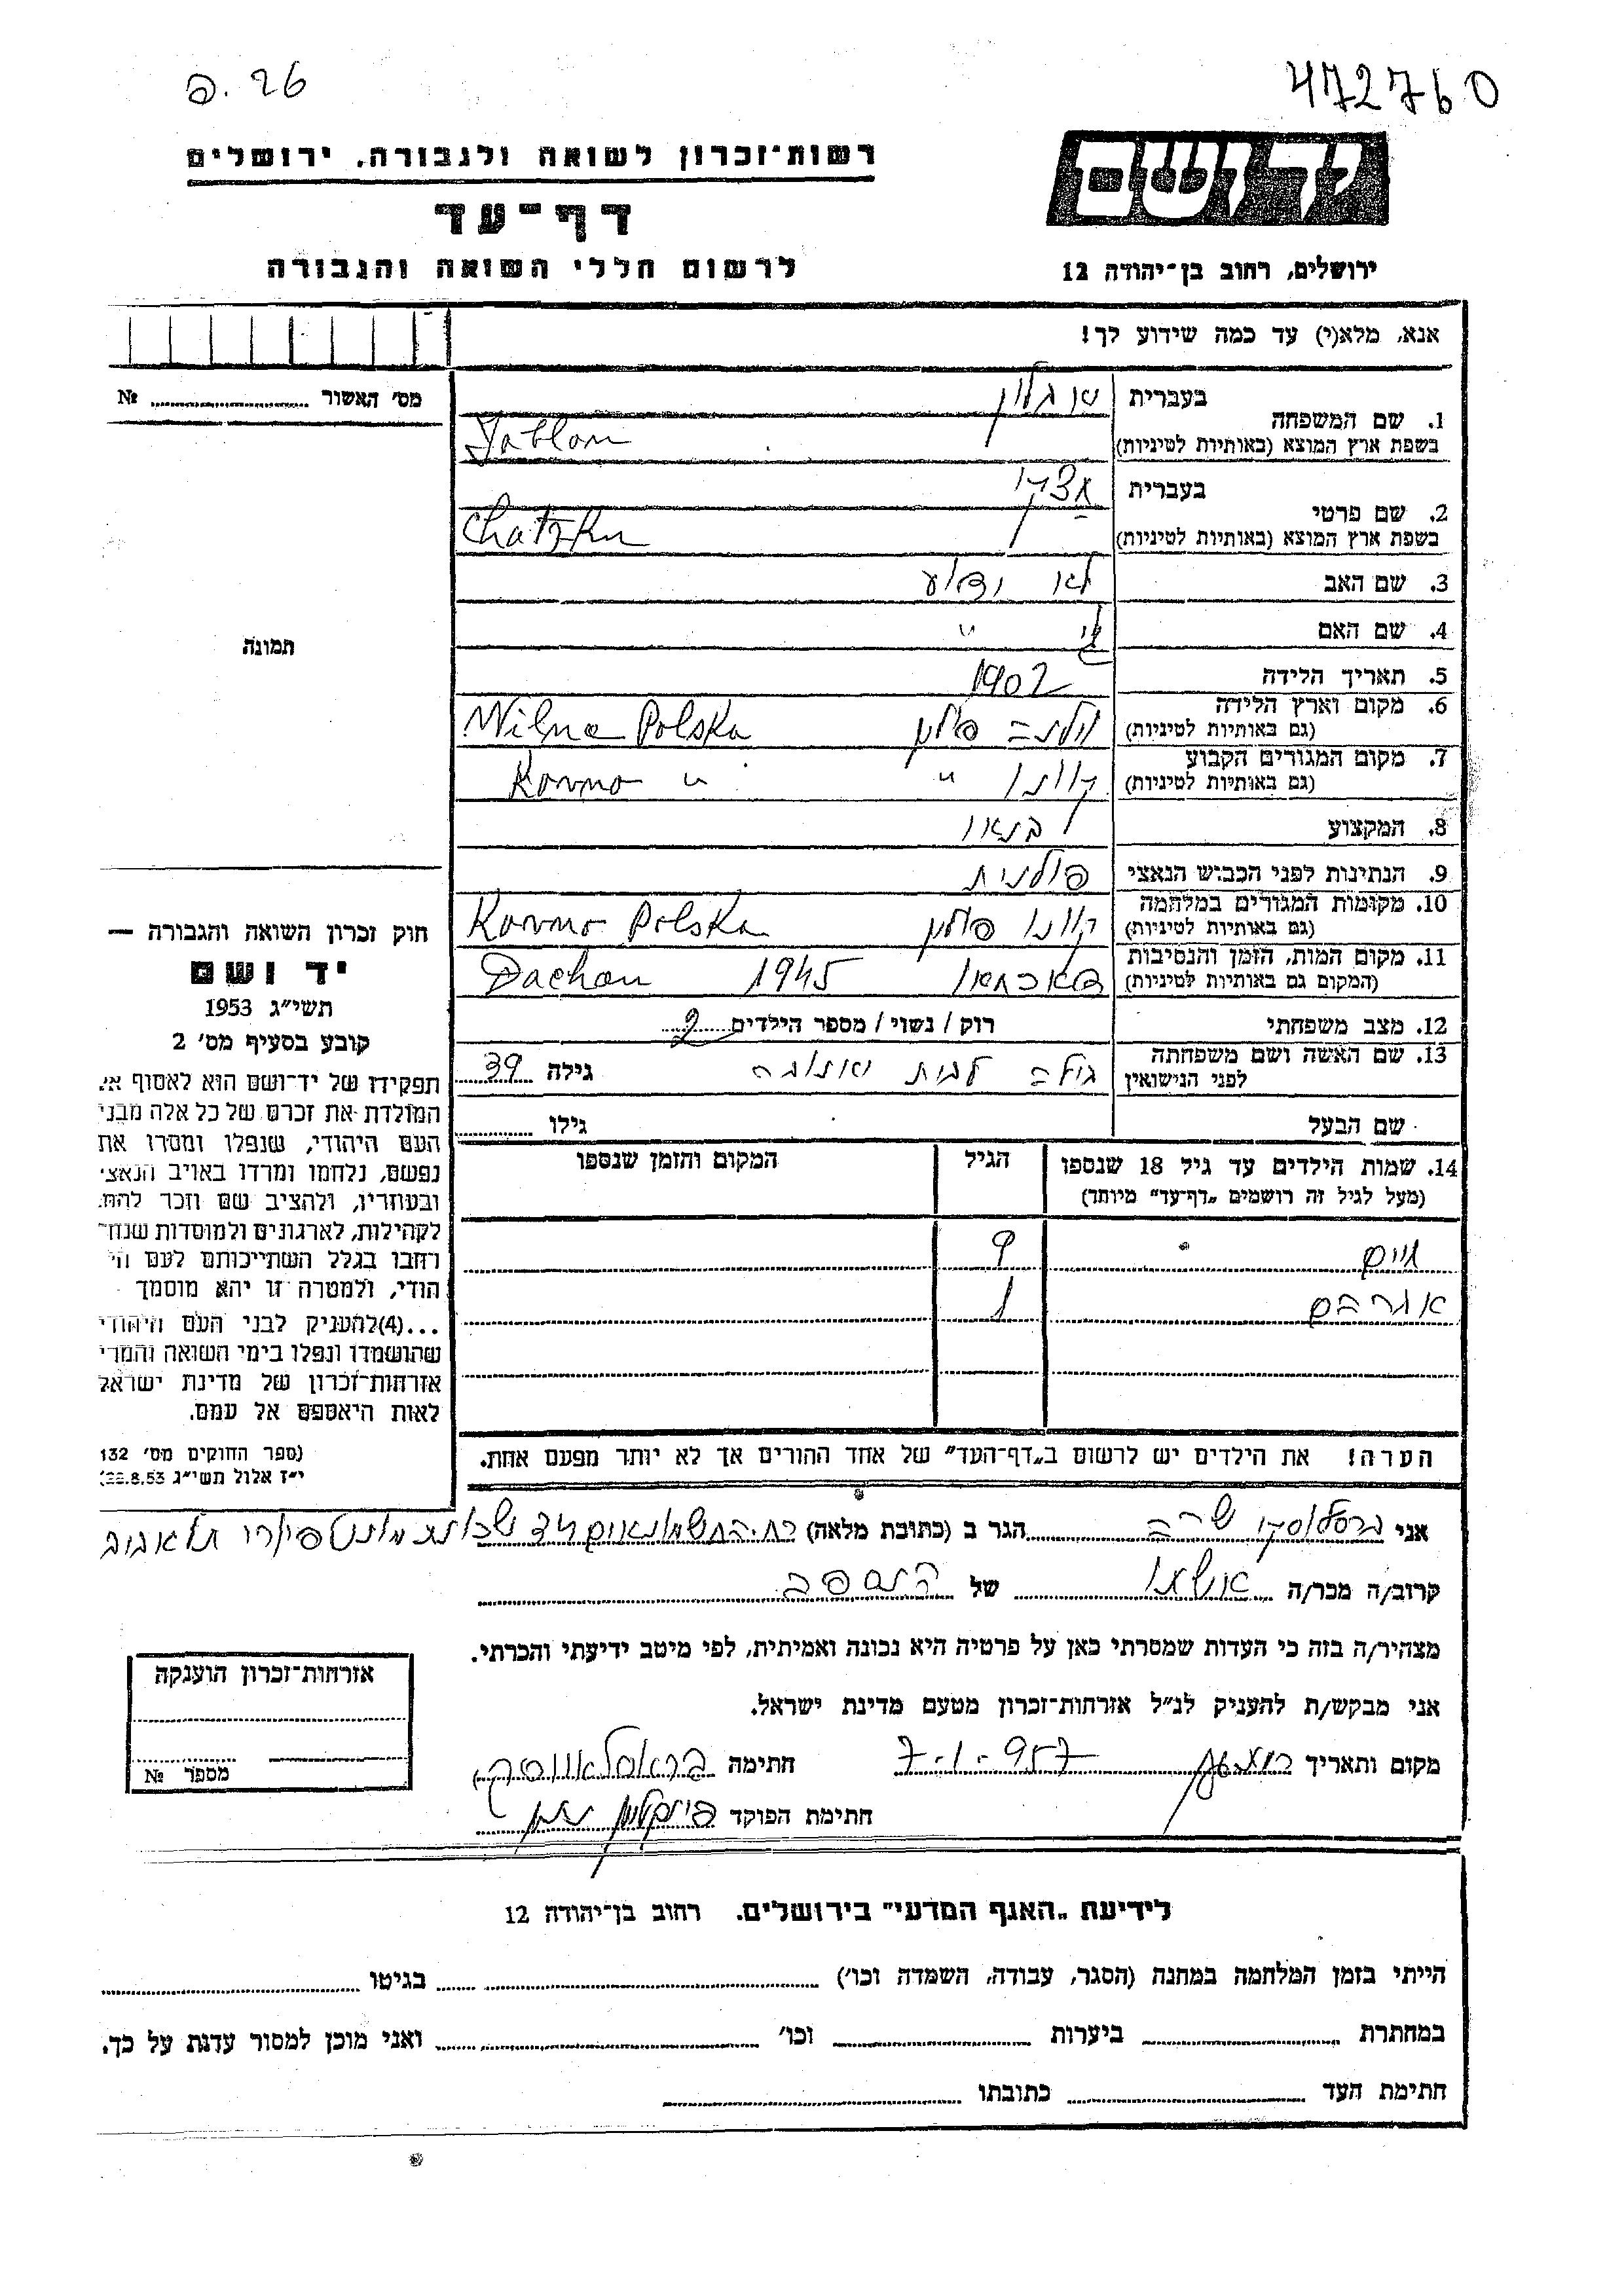 472760
פ. 26
יד ושם
רשות־זכרון לשואה ולגבורה, ירושלים
דף־עד
לרשום חללי השואה והגבורה
ירושלים, רחוב בן־יהודה 12
אנא, מלא(י) עד כמה שידוע לך!
מס' האשור № ........
1. שם המשפחה
בעברית
בשפת ארץ המוצא (באותיות לטיניות)
Jablon
2. שם פרטי
בעברית
בשפת ארץ המוצא (באותיות לטיניות)
Chatzku
3. שם האב לא ידוע
4. שם האם "
5. תאריך הלידה 1902
6. מקום וארץ הלידה
(גם באותיות לטיניות)
וילנה פולין Wilna Polska
7. מקום המגורים הקבוע
(גם באותיות לטיניות)
קוונו " Kovno "
8. המקצוע בנאי
9. הנתינות לפני הכבוש הנאצי פולנית
10. מקומות המגורים במלחמה
(גם באותיות לטיניות)
קוונו פולין Kovno Polska
11. מקום המות, הזמן והנסיבות
(המקום גם באותיות לטיניות)
דאכאו 1945 Dachau
12. מצב משפחתי רוק / נשוי / מספר הילדים 2
13. שם האשה ושם משפחתה
לפני הנישואין
לבית גילה 39
שם הבעל גילו ........
14. שמות הילדים עד גיל 18 שנספו
(מעל לגיל זה רושמים „דף־עד" מיוחד)
הגיל
המקום והזמן שנספו
חיים 9
אברהם 1
הערה! את הילדים יש לרשום ב„דף־העד" של אחד ההורים אך לא יותר מפעם אחת.
תמונה
חוק זכרון השואה והגבורה —
יד ושם
תשי״ג 1953
קובע בסעיף מס' 2
תפקידו של יד־ושם הוא לאסוף אל
המולדת את זכרם של כל אלה מבני
העם היהודי, שנפלו ומסרו את
נפשם, נלחמו ומרדו באויב הנאצי
ובעוזריו, ולהציב שם וזכר להם,
לקהילות, לארגונים ולמוסדות שנח־
רחבו בגלל השתייכותם לעם הי־
הודי, ולמטרה זו יהא מוסמך
...(4)להעניק לבני העם היהודי
שהושמדו ונפלו בימי השואה והמרי
אזרחות־זכרון של מדינת ישראל
לאות היאספם אל עמם.
(ספר החוקים מס' 132
י״ז אלול תשי״ג 28.8.53)
אני ברסלבסקי שרה הגר ב (כתובת מלאה) רח. החשמונאים שכונת מונטיפיורי תל אביב
קרוב/ה מכר/ה של הנספה
מצהיר/ה בזה כי העדות שמסרתי כאן על פרטיה היא נכונה ואמיתית, לפי מיטב ידיעתי והכרתי.
אני מבקש/ת להעניק לנ״ל אזרחות־זכרון מטעם מדינת ישראל.
מקום ותאריך 7-1-957 חתימה
חתימת הפוקד
אזרחות־זכרון הוענקה
מספר №
לידיעת „האגף המדעי" בירושלים. רחוב בן־יהודה 12
הייתי בזמן המלחמה במחנה (הסגר, עבודה, השמדה וכו') ........ בגיטו ........
במחתרת ........ ביערות ........ וכו' ........ ואני מוכן למסור עדות על כך.
חתימת העד ........ כתובתו ........